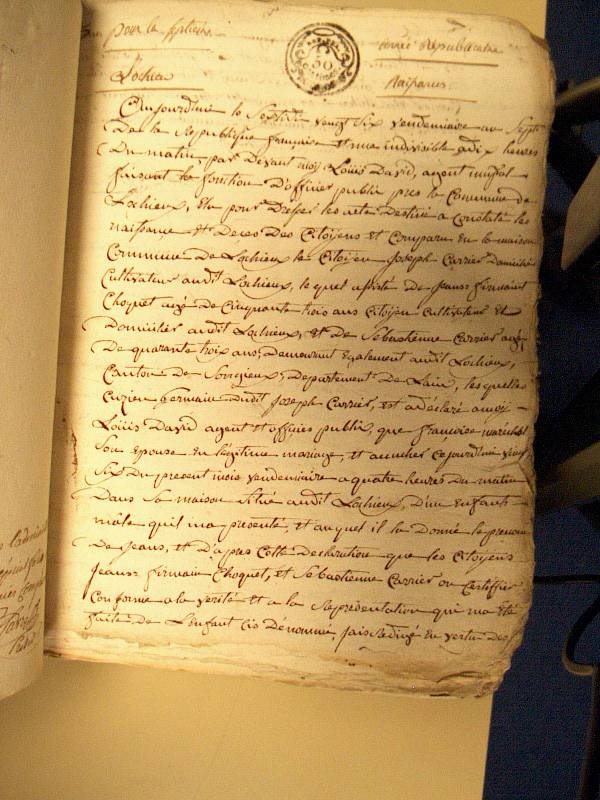 pour la septieme année Républicaine
Lochieu
Naissances
Aujourd'hui le Septidi vengt Six vendemiaire an Sept
De la Republique française et une indivisible a dix heures
Du matin, par Devant moy Louis David, agent municipal
faisant les fonction D'officier public pres la Commune de
Lochieux, Elu pour Dresser les acte Destiné a Constaté les
naissance et Deces Des Citoyens et Comparu En la maison
Commune De Lochieux le Citoyen Joseph Carrier Domicilié
Cultivateur audit Lochieux, le quel assisté de Jeans firmain
Choquet agé de Cinquante trois ans Citoyen Cultivateur Et
Domicilier audit Lochieux, et De Sebastienne Carrier agée
De quarante trois ans, Demeurant Egalement audit Lochieux,
Canton De Songieux, Departement De Lain, les quelles
Cuzien Germain Dudit Joseph Carrier, Est a déclaré a moy
Louis David agent et officier public, que françoise maréchal
Son épouse En légitime mariage, et accucher Cejourd'hui vengt
Six Du present mois vendemiaire a quatre heures Du matin
Dans Sa maison Sitié audit Lochieux, D'un Enfants
mâle quil ma presenté, et auquel il la Donné le prenom
De Jeans, et D'apres Cette Declaration que les Citoyens
Jeans firmain Choquet, et Sebastienne Carrier on Certiffier
Conforme a la verité et a la Representation qui ma Eté
faite de L'enfant Cis Dénommé, Jais Redigé En vertu Des